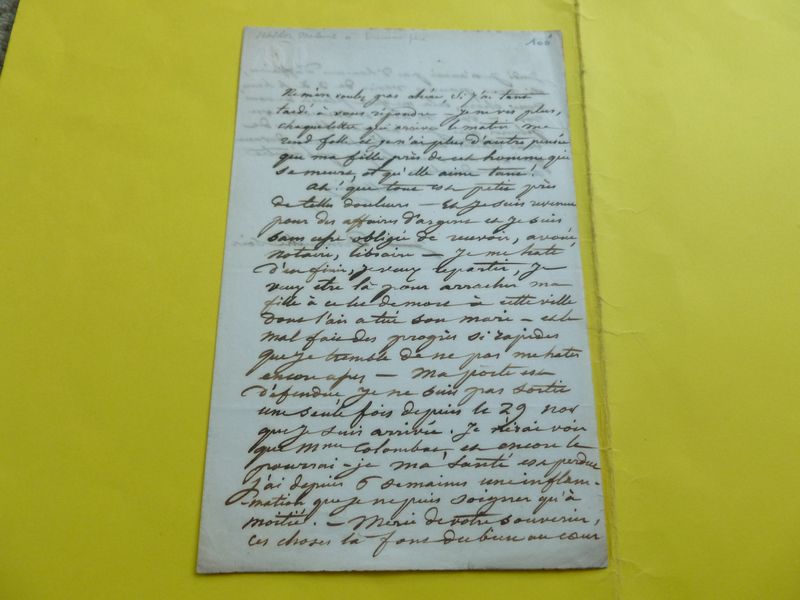 166
Ne m'en voulez pas chère, si j'ai tant
tardé à vous répondre – je ne vis plus,
chaque lettre qui arrive le matin me
rend folle et je n'ai plus d'autre pensée
que ma fille près de cet homme qui
se meurt, et qu'elle aime tant!
Ah! que tout est petit près
de telles douleurs – Et je suis revenue
pour des affaires d'argent et je suis
sans cesse obligée de recevoir, avoué,
notaire, libraire – Je me hate
d'en finir, je veux repartir, je
veux être là pour arracher ma
fille à ce lit de mort à cette ville
dont l'air a tué son mari – et le
mal fait des progrès si rapides
que je tremble de ne pas me hater
encore assez – Ma porte est
défendue, je ne suis pas sortie
une seule fois depuis le 29 nov
que je suis arrivée. Je n'ai vu
que Mme Colombat, et encore le
pourrai-je ma santé est perdue
j'ai depuis 6 semaines une inflam-
-mation que je ne puis soigner qu'à
moitié. – Merci de votre souvenir,
ces choses là font du bien au cœur